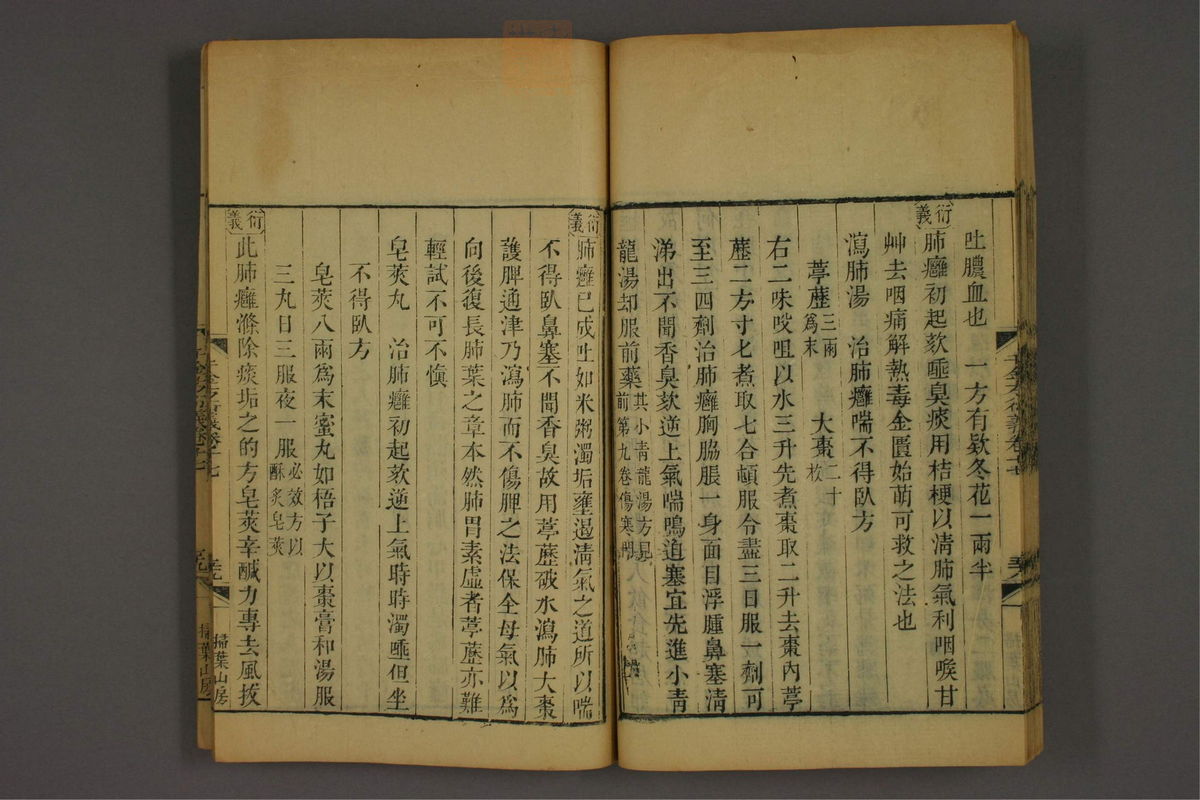 吐膿血也　一方有欵冬花一兩半
衍義 肺癰初起欬唾臭痰用桔梗以清肺氣利咽喉甘
艸去咽痛解熱毒金匱始萌可救之法也
瀉肺湯　治肺癰喘不得臥方
葶藶三兩爲末　大棗二十枚
右二味㕮咀以水三升先煮棗取二升去棗內葶
藶二方寸匕煮取七合頓服令盡三日服一劑可
至三四劑治肺癰胸脇脹一身面目浮腫鼻塞清
涕出不聞香臭欬逆上氣喘鳴迫塞宜先進小青
龍湯却服前藥其小青龍湯方見前第九卷傷寒門
衍義 肺癰已成吐如米粥濁垢壅遏清氣之道所以喘
不得臥鼻塞不聞香臭故用葶藶破水瀉肺大棗
護脾通津乃瀉肺而不傷脾之法保全母氣以爲
向後復長肺葉之章本然肺胃素虛者葶藶亦難
輕試不可不愼
皂莢丸　治肺癰初起欬逆上氣時時濁唾但坐
不得臥方
皂莢八兩爲末蜜丸如梧子大以棗膏和湯服
三丸日三服夜一服必效方以酥炙皂莢
衍義 此肺癰滌除痰垢之的方皂莢辛鹹力專去風拔
掃葉山房